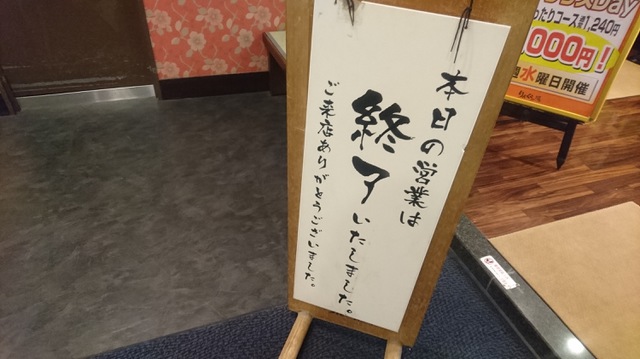 本日の営業は
終了いたしました。
ご来店ありがとうございました。
ったりコース
1,240円
000円!
週水曜日開催